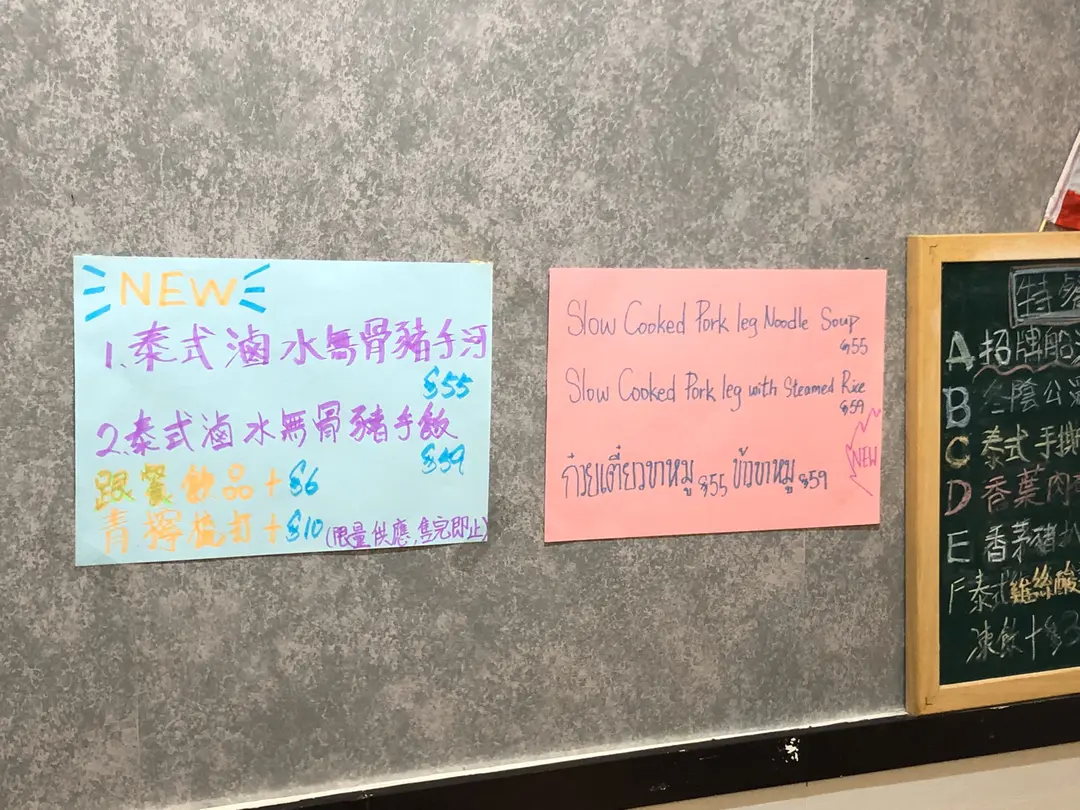 NEW
1.泰式滷水無骨豬手河
$55
2.泰式滷水無骨豬手飯
$59
跟餐飲品+$6
青檸梳打+$10(限量供應,售完即止)
Slow Cooked Pork leg Noodle Soup
$55
Slow Cooked Pork leg with Steamed Rice
$59
NEW
ก๋วยเตี๋ยวขาหมู $55 ข้าวขาหมู $59
特餐
A 招牌船
B 冬陰公
C 泰式手撕
D 香葉肉
E 香茅豬扒
F 泰式雞絲酸
凍飲+$3